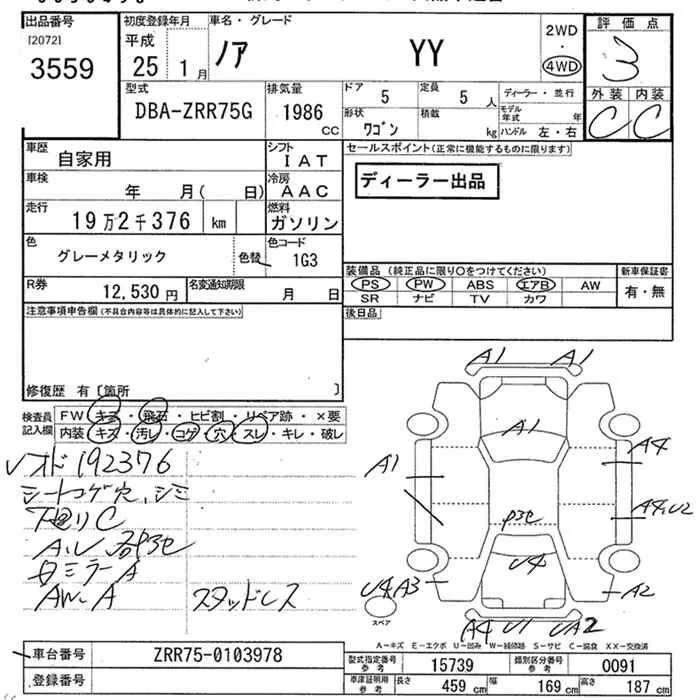 出品番号
[2072]
3559
初度登録年月
平成
25 1月
車名・グレード
ノア YY
2WD
・
4WD
評価点
3
外装 内装
C C
型式
DBA-ZRR75G
排気量
1986
CC
ドア
5
定員
5 人
形状
ワゴン
積載
kg
ディーラー・並行
モデル年式 年
ハンドル 左・右
車歴
自家用
シフト
IAT
セールスポイント(正常に機能するものに限ります)
ディーラー出品
車検
年 月( 日)
冷房
AAC
走行
19万2千376 km
燃料
ガソリン
色
グレーメタリック
色替
色コード
1G3
R券
12,530 円
名変通知期限
月 日
装備品 (純正品に限り○をつけてください)
PS PW ABS エアB AW
SR ナビ TV カワ
新車保証書
有・無
注意事項申告欄(不具合内容等は具体的に記入して下さい)
後日品
修復歴 有 [箇所 ]
検査員記入欄
FW キズ・飛石・ヒビ割・リペア跡・×要
内装 キズ・汚レ・コゲ・穴・スレ・キレ・破レ
レオド192376
シートコゲ穴、シミ
下回りC
ミラーA
スタッドレス
A1 A1
A1
A1
A4
A4,U2
U4
U4 A3
A2
スペア
A4 U1 UA2
A－キズ E－エクボ U－凹み W－補修跡 S－サビ C－腐食 XX－交換済
車台番号
ZRR75-0103978
登録番号
型式指定番号 参考
15739
類別区分番号 参考
0091
車庫証明用 参考
長さ 459 cm
幅 169 cm
高さ 187 cm